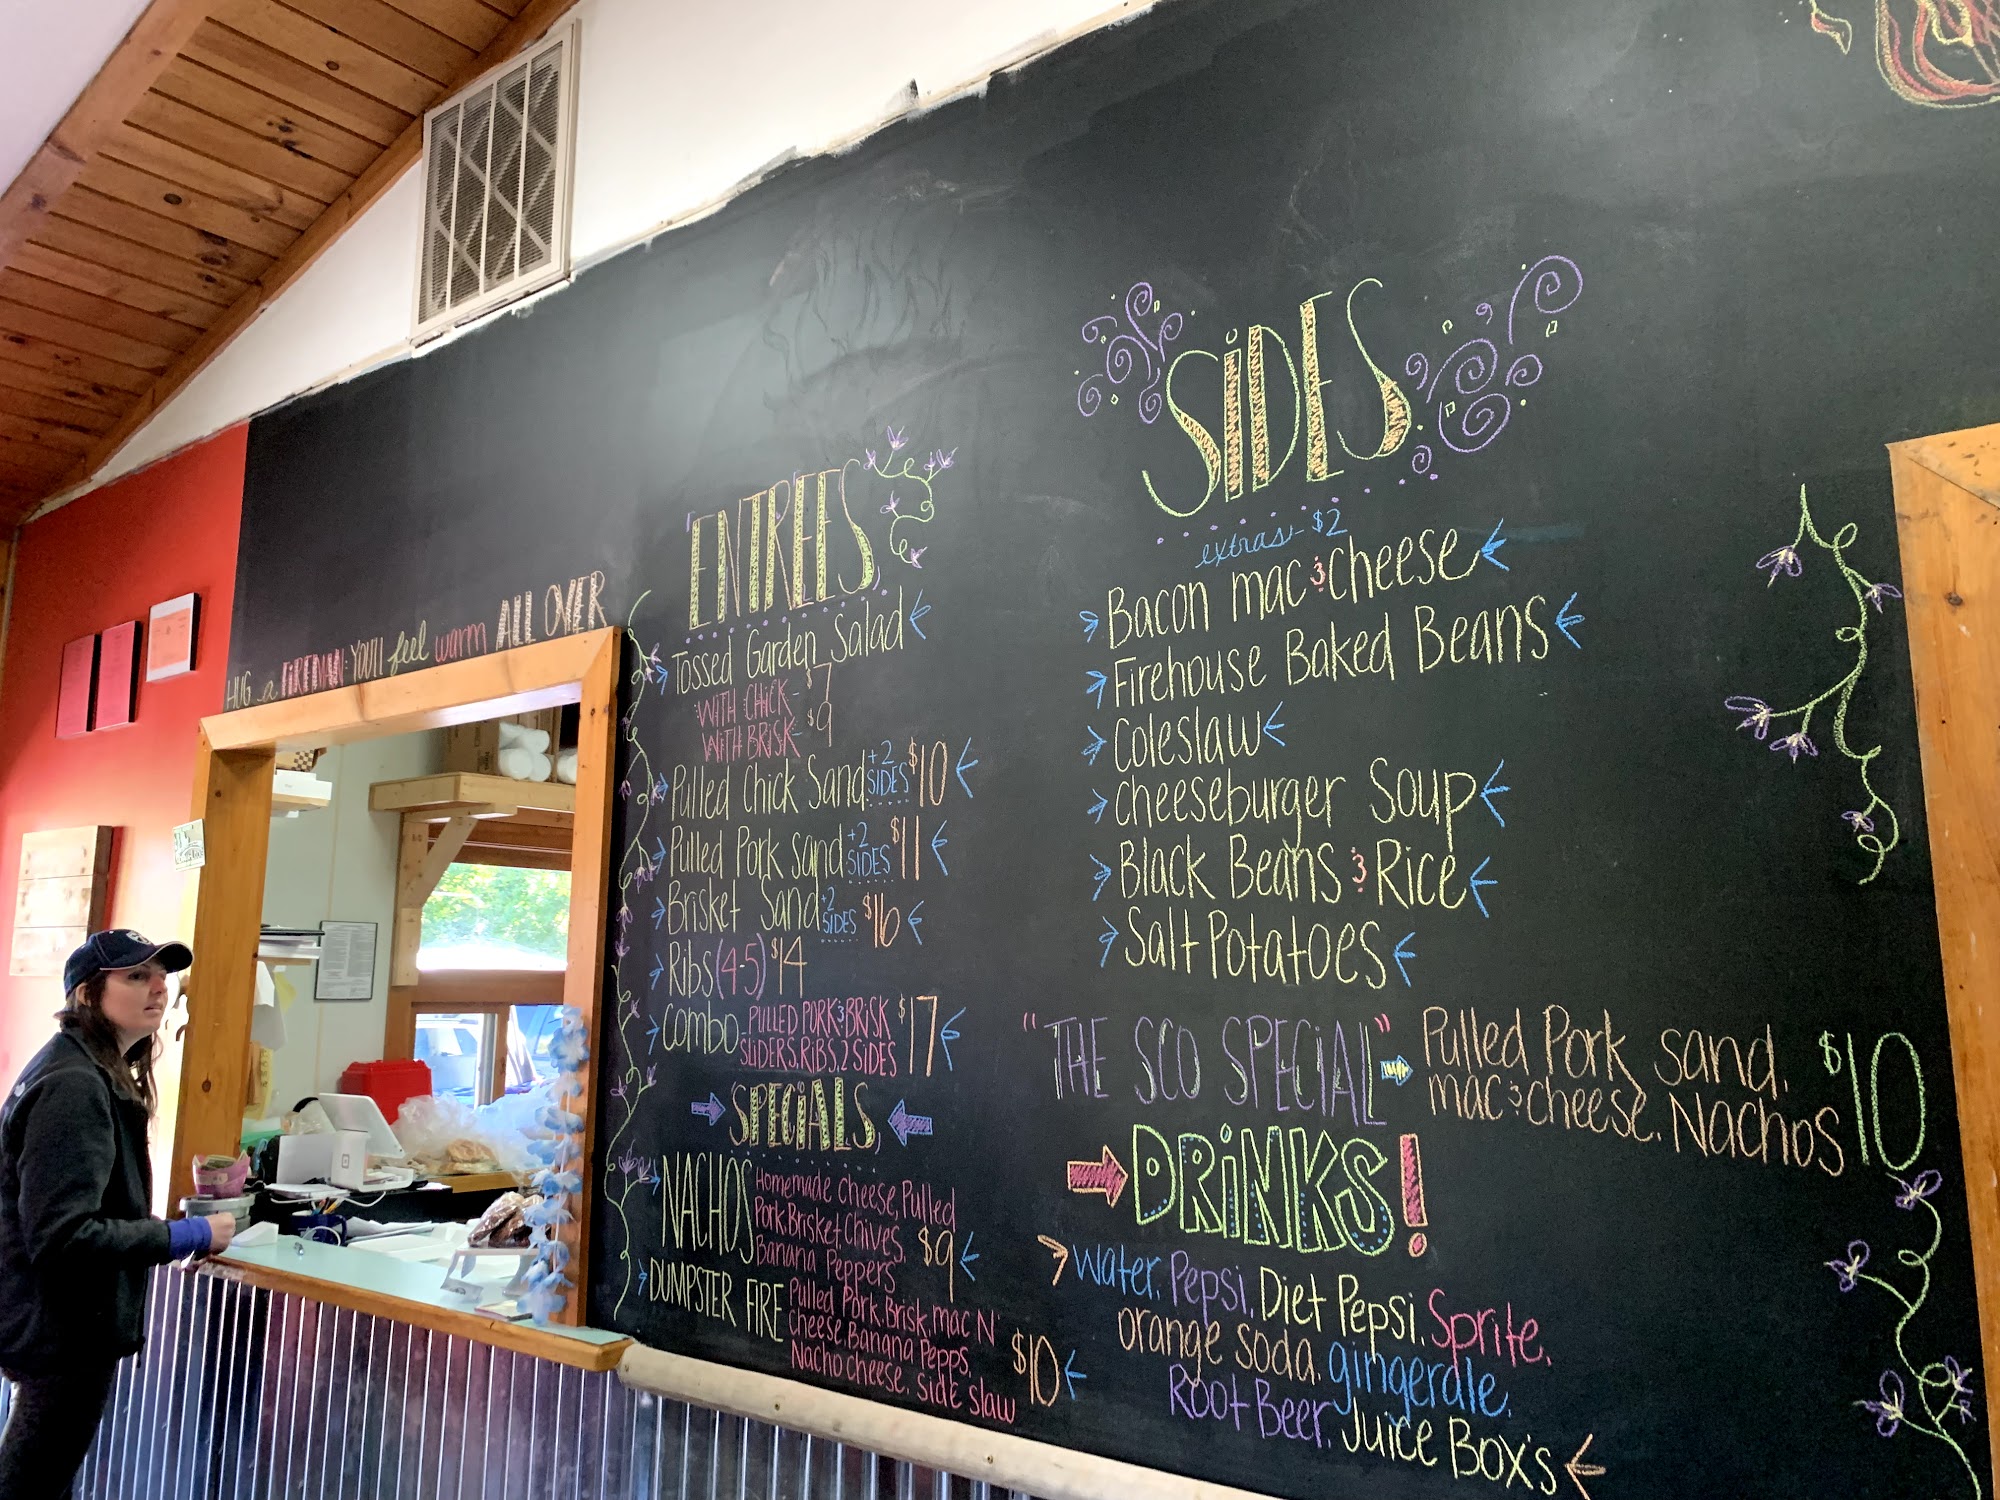 HUG a FIREMAN: YOU'll feel warm ALL OVER
ENTREES
Tossed Garden Salad
WITH CHICK- $7
WITH BRISK- $9
Pulled Chick Sand +2 SIDES $10
Pulled Pork Sand +2 SIDES $11
Brisket Sand +2 SIDES $16
Ribs (4-5) $14
Combo - PULLED PORK & BRISK $17
SLIDERS, RIBS, 2 SIDES
SPECIALS
NACHOS Homemade Cheese, Pulled
Pork, Brisket, Chives, $9
Banana Peppers
DUMPSTER FIRE Pulled Pork, Brisk, mac N'
Cheese, Banana Pepps, $10
Nacho Cheese, side slaw
SIDES
extras- $2
Bacon mac & Cheese
Firehouse Baked Beans
Coleslaw
Cheeseburger Soup
Black Beans & Rice
Salt Potatoes
"THE SCO SPECIAL" Pulled Pork sand, $10
mac & cheese, Nachos
DRiNKS!
Water, Pepsi, Diet Pepsi, Sprite,
orange soda, gingerale,
Root Beer, Juice Box's